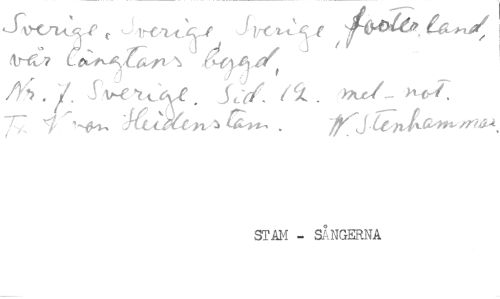 Sverige, Sverige, Sverige, fosterland,
vår längtans bygd,
Nr. 7. Sverige. Sid. 12. mel-not.
Tx V von Heidenstam. W. Stenhammar.
STAM - SÅNGERNA